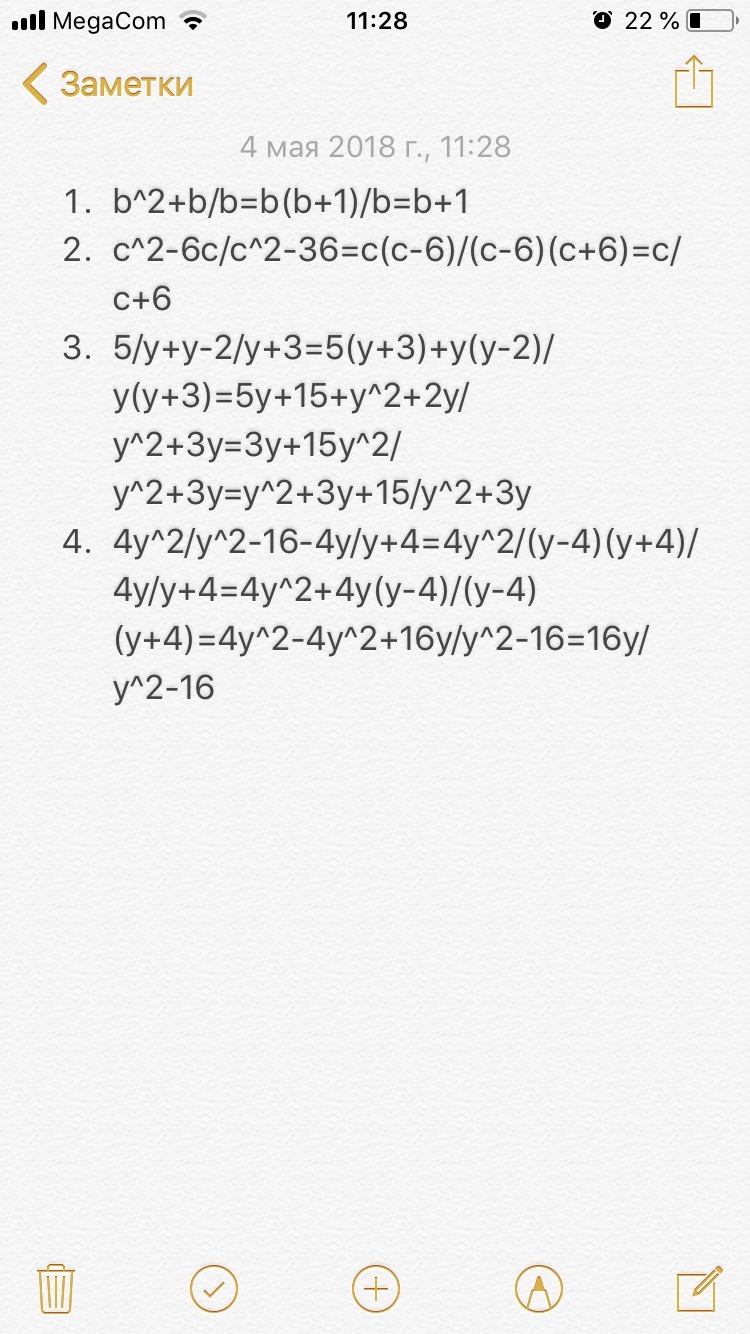 MegaCom 11:28 22 %
Заметки
4 мая 2018 г., 11:28
1. b^2+b/b=b(b+1)/b=b+1
2. c^2-6c/c^2-36=c(c-6)/(c-6)(c+6)=c/
c+6
3. 5/y+y-2/y+3=5(y+3)+y(y-2)/
y(y+3)=5y+15+y^2+2y/
y^2+3y=3y+15y^2/
y^2+3y=y^2+3y+15/y^2+3y
4. 4y^2/y^2-16-4y/y+4=4y^2/(y-4)(y+4)/
4y/y+4=4y^2+4y(y-4)/(y-4)
(y+4)=4y^2-4y^2+16y/y^2-16=16y/
y^2-16